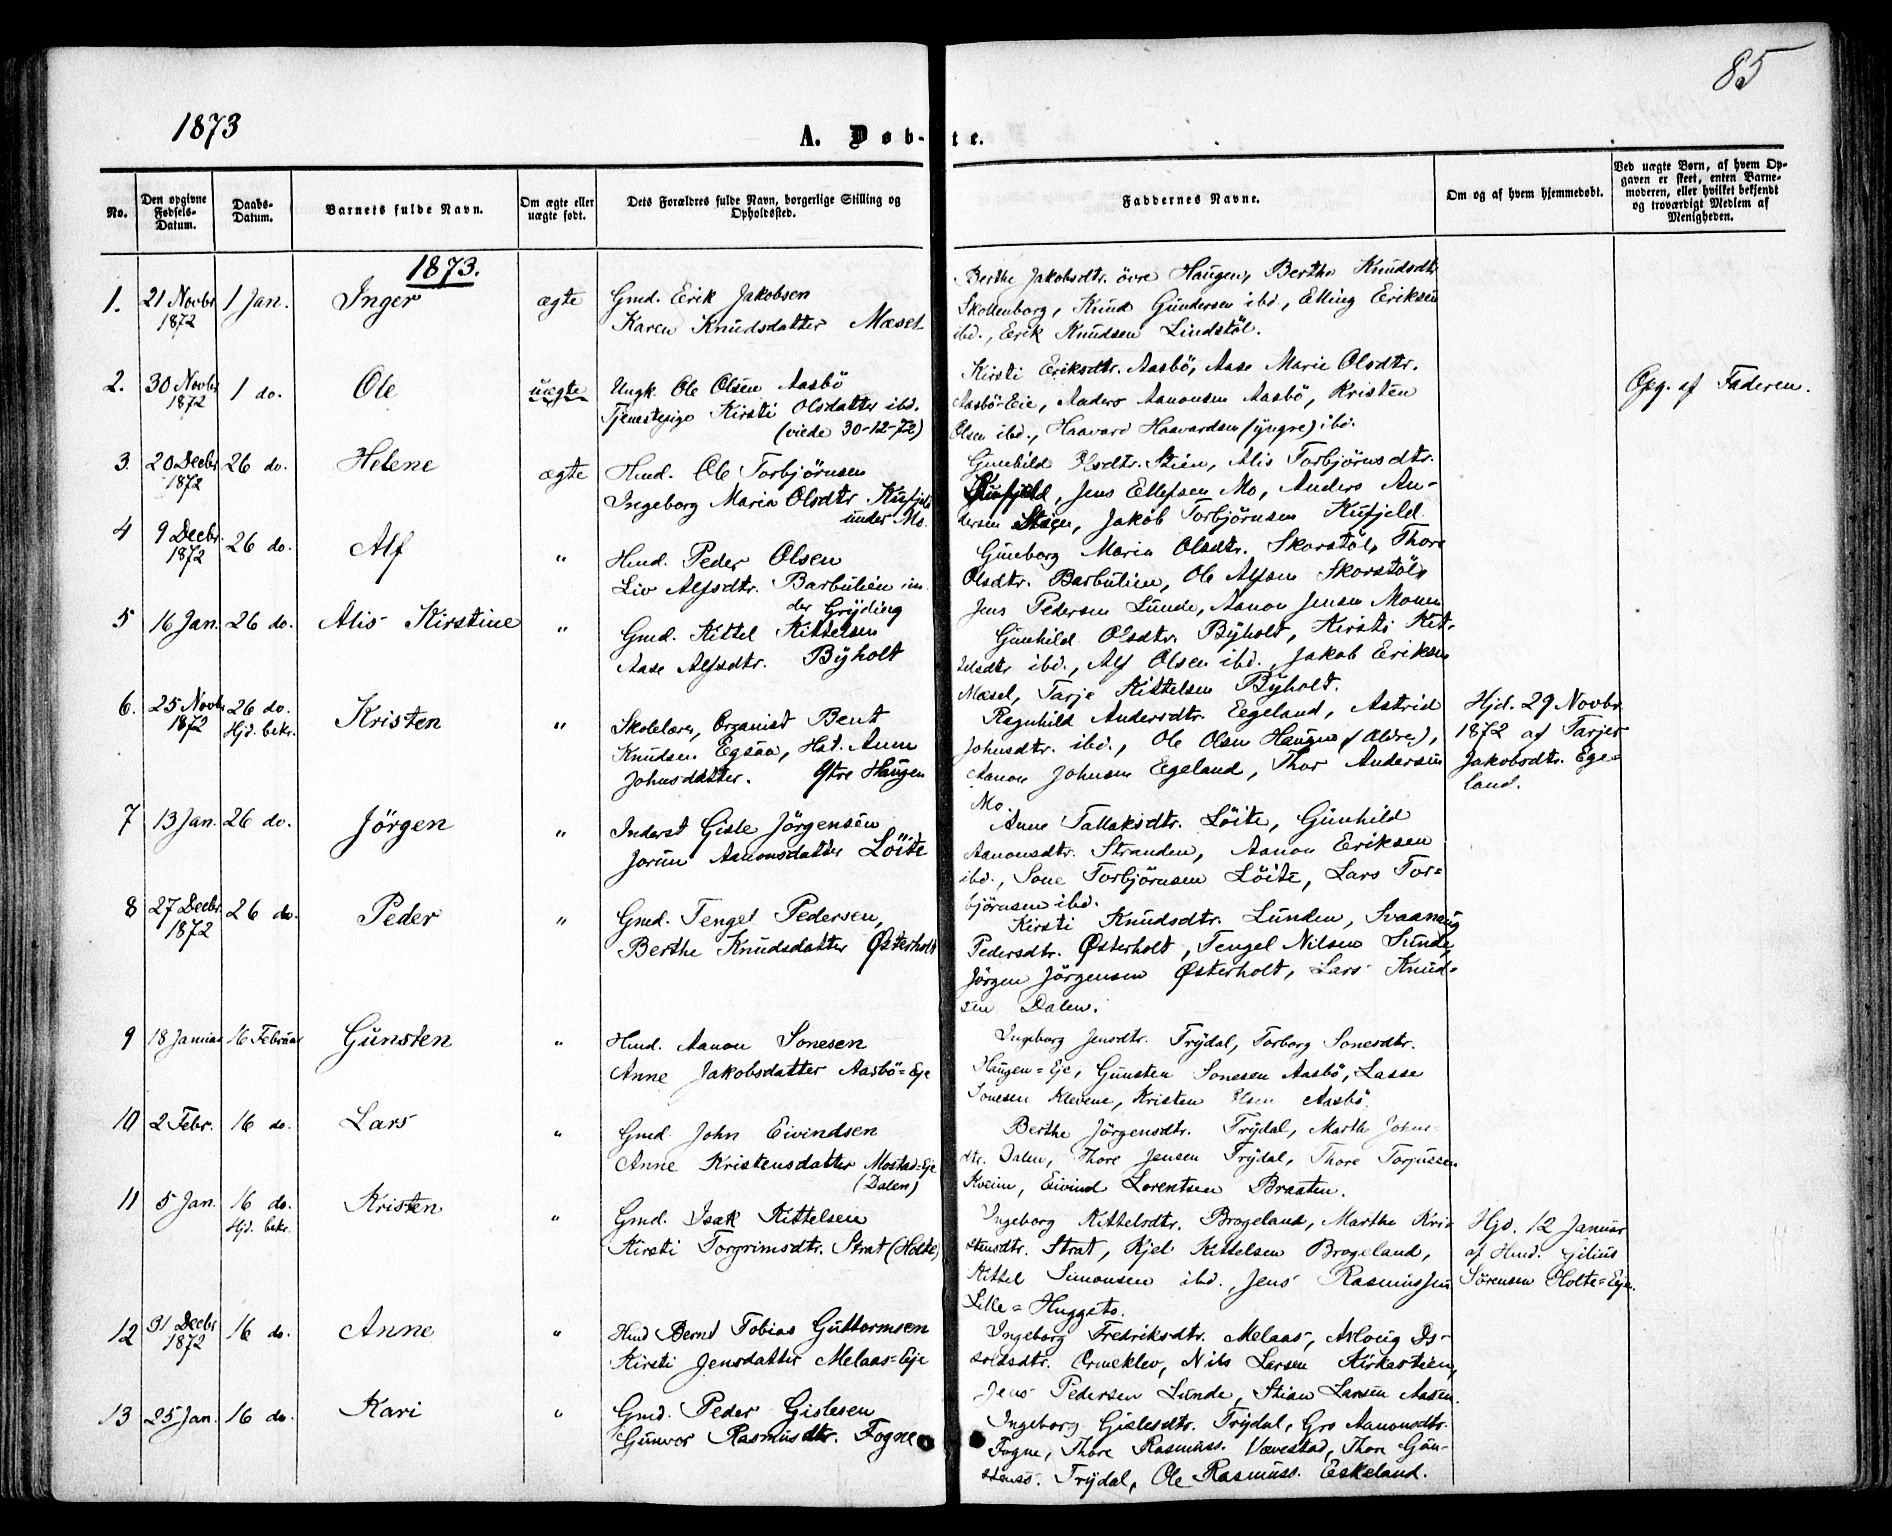 85
1873
A. Døb-te.
No.
Den opgivne Fødsels-Datum.
Daabs-Datum.
Barnets fulde Navn.
Om ægte eller uægte født.
Dets Forældres fulde Navn, borgerlige Stilling og Opholdssted.
Faddernes Navne.
Om og af hvem hjemmedøbt.
Ved uægte Børn, af hvem Opgaven er skeet, enten Barnemoderen, eller hvilket bekjendt og troværdigt Medlem af Menigheden.
1873.
1. 21 Novbr 1872 1 Jan. Inger ægte
Gmd. Erik Jakobsen
Karen Knudsdatter Mæsel
Berthe Jakobsdtr. övre Haugen, Berthe Knudsdtr
Skollenborg, Knud Gundersen ibd, Elling Eriksen
ibd., Erik Knudsen Lindstöl.
2. 30 Novbr 1872 1 do. Ole uægte
Ungk. Ole Olsen Aasbö
Tjenestepige Kirsti Olsdatter ibd.
(viede 30-12-72)
Kirsti Eriksdtr. Aasbö, Aase Marie Olsdtr.
Aasbö-Eie, Anders Aanonsen Aasbö, Kristen
Olsen ibd., Haavard Haavardsen (yngre) ibd.
Opg. af Faderen.
3. 20 Decbr 1872 26 do. Helene ægte
Hmd. Ole Torbjörnsen
Ingeborg Maria Olsdtr. Kufjeld
under Mo.
Gunhild Olsdtr. Stien, Alis Torbjörnsdtr.
Kufjeld, Jens Ellefsen Mo, Anders An-
dersen Stien, Jakob Torbjörnsen Kufjeld.
4 9 Decbr. 1872 26 do. Alf "
Hmd. Peder Olsen
Liv Alfsdtr. Barbulien un-
der Gryding
Guneborg Maria Olsdtr. Skorstöl, Thore
Olsdtr. Barbulien, Ole Alfsen Skorstöl,
Jens Pedersen Lunde, Aanon Jensen Moen
5 16 Jan. 26 do. Alis Kirstine "
Gmd. Kittel Kittelsen
Aase Alfsdtr. Byholt
Gunhild Olsdtr. Byholt, Kirsti Kit-
telsdtr ibd., Alf Olsen ibd., Jakob Eriksen
Mæsel, Tarje Kittelsen Byholt.
6. 25 Novbr 1872 26 do. Hjd. bekr. Kristen "
Skolelærer, Organist Bent
Knudsen Egsaa, Hst. Anne
Johnsdatter. Ytre Haugen
Ragnhild Andersdtr. Egeland, Astrid
Johnsdtr. ibd., Ole Olsen Haugen (Ældre),
Aanon Johnsen Egeland, Thor Andersen
Mo.
Hjd. 29 Novbr.
1872 af Tarjer
Jakobsdtr. Ege=
land.
7 13 Jan. 26 do. Jörgen "
Inderst Gisle Jörgensen
Jorun Aanonsdatter Löite
Anne Tallaksdtr. Löite, Gunhild
Aanonsdtr. Stranden, Aanon Eriksen
ibd., Sone Torbjörnsen Löite, Lars Tor=
björnsen ibd.
8 27 Decbr. 1872 26 do. Peder "
Gmd. Tengel Pedersen,
Berthe Knudsdatter Østerholt
Kirsti Knudsdtr. Lunden, Svaanaug
Pedersdtr. Østerholt, Tengel Nilsen Lunde,
Jörgen Jörgensen Østerholt, Lars Knud=
sen Dalen.
9 18 Januar 16 Februar Gunsten "
Hmd. Aanon Sonesen
Anne Jakobsdatter Aasbö=Eje
Ingeborg Jensdtr. Trydal, Torborg Sonesdtr.
Haugen=Eje, Gunsten Sonesen Aasbö, Lasse
Sonesen Klevene, Kristen Olsen Aasbö.
10 2 Febr. 16 do. Lars "
Gmd. John Eivindsen
Anne Kristensdatter Mostad=Eje
(Dalen)
Berthe Jörgensdtr. Trydal, Marthe Johns-
dtr. Dalen, Thore Jensen Trydal, Thore Torjussen
Kveim, Eivind Lorentsen Braaten.
11 5 Jan. 16 do. Hjd. bekr. Kristen "
Gmd. Isak Kittelsen
Kirsti Torgrimsdtr. Strat (Holte)
Ingeborg Kittelsdtr. Brogeland, Marthe Kri-
stensdtr. Strat, Kjel Kittelsen Brogeland,
Kittel Simonsen ibd. Jens Rasmussen
Lille=Huggeto.
Hjd. 12 Januar
af Hmd. Gilius
Sörensen Holte=Eje.
12 31 Decbr 1872 16 do. Anne "
Hmd Bernt Tobias Guttormsen
Kirsti Jensdatter Melaas=Eje
Ingeborg Fredriksdtr. Melaas, Asloug Os-
soldsdtr. Ormeklev, Nils Larsen Kirkestien,
Jens Pedersen Lunde, Stian Larsen Aasen.
13 25 Jan. 16 do. Kari "
Gmd. Peder Gislesen
Gunvor Rasmusdtr. Fogne
Ingeborg Gislesdtr. Trydal, Gro Aanonsdtr.
Fogne, Thore Rasmuss. Vævestad, Thore Gun-
stenss. Trydal, Ole Rasmuss. Eskeland.